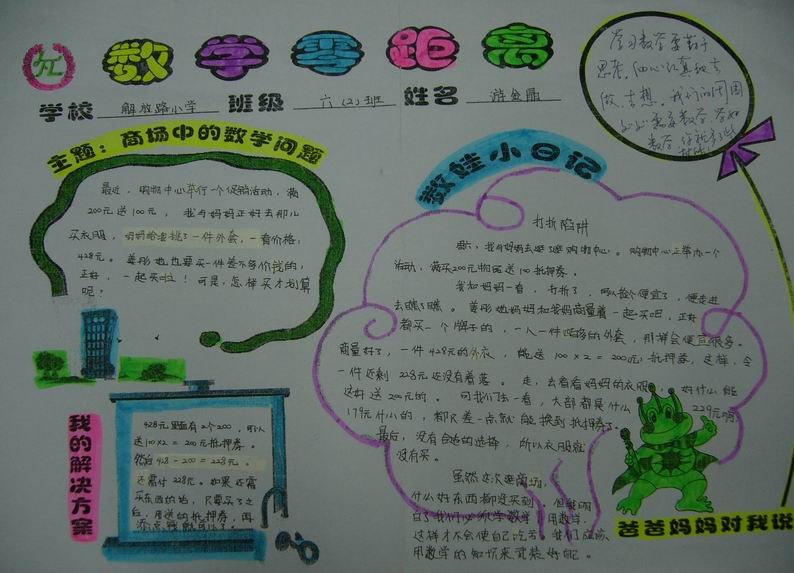 数学零距离
学校 解放路小学 班级 六(2)班 姓名 游金晶
主题：商场中的数学问题
最近，购物中心举行一个促销活动，满
200元送100元，我与妈妈正好去那儿
买衣服，妈妈给我挑了一件外套，一看价格：
428元。姜彤也也要买一件差不多价钱的，
正好，一起买啦！可是，怎样买才划算
呢？
我的解决方案
428元里面有2个200，可以
送100×2=200元抵押券。
然后428-200=228元。
还需付228元。如果还需
买东西的话，只要买了之
后，用送的抵押券，再
添点钱就可以了。
数娃小日记
打折陷阱
购物中心正举办一个
活动，满买200元物品送100抵押券。
我和妈妈一看，打折了，可以捡个便宜了，便走进
去瞧了瞧。姜彤她妈妈和我妈商量着一起买吧，正好
都买一个牌子的，一人一件
的外套，那样会便宜很多。
商量好了，一件428元的外衣，能送100×2=200元抵押券，这样，令
一件还剩228元还没有着落。走，去看看妈妈的衣服，好什么能
达好送200元的。可我们去一看，大部都是什么229元啊，
179元什么的，都只差一点就能换到抵押券了。
最后，没有合适的选择，所以衣服就
没有买。
虽然这次逛商场，
什么好东西都没买到，但能明
白了我们必须学数学，用数学，
这样才不会使自己吃亏，我们应该
用数学的知识来武装好自己。
学习数学要勤于
思考，细心认真地去
做、去想。我们的周围
处处需要数学，学好
爸爸妈妈对我说